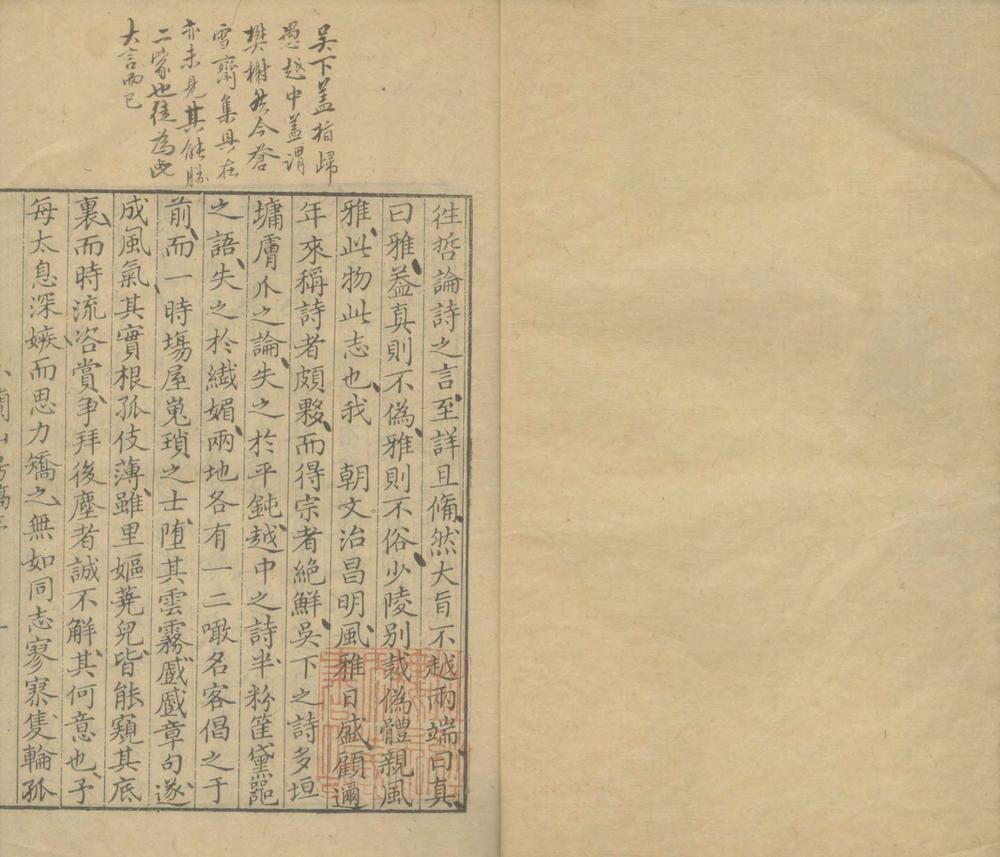 吴下蓋指歸
愚越中蓋謂
樊榭然今蒼
雪齋集具在
亦未見其能勝
二家也徒為此
大言而已
徃哲論詩之言至詳且脩然大旨不越兩端曰真
曰雅葢真則不偽雅則不俗少陵别裁偽體親風
雅此物此志也我　朝文治昌明風雅日盛顧邇
年來稱詩者頗夥而得宗者絶鮮吳下之詩多垣
墉膚爪之論失之於平鈍越中之詩半粉筐黛器
之語失之於纎媚兩地各有一二噉名客倡之于
前而一時塲屋嵬瑣之士堕其雲霧蹙蹙章句遂
成風氣其實根孤伎薄雖里嫗蕘兒皆能窺其底
裏而時流咨賞爭拜後塵者誠不解其何意也予
每太息深嫉而思力矯之無如同志寥寥隻輪孤